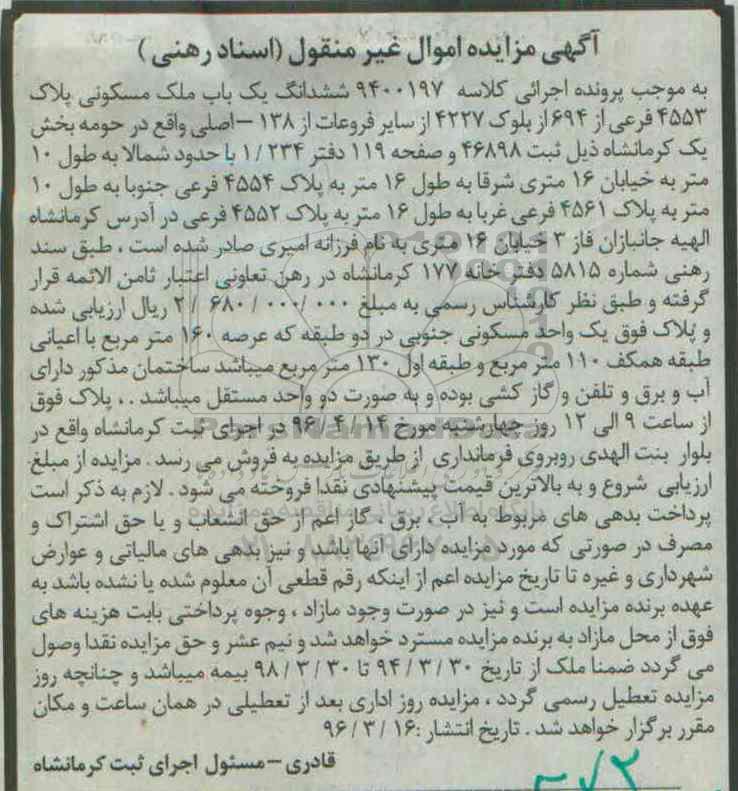 آگهی مزایده اموال غیر منقول (اسناد رهنی)
به موجب پرونده اجرائی کلاسه ۹۴۰۰۱۹۷ ششدانگ یک باب ملک مسکونی پلاک
۴۵۵۳ فرعی از ۶۹۴ از بلوک ۴۲۲۷ از سایر فروعات از ۱۳۸ –اصلی واقع در حومه بخش
یک کرمانشاه ذیل ثبت ۴۶۸۹۸ و صفحه ۱۱۹ دفتر ۱/۲۳۴ با حدود شمالا به طول ۱۰
متر به خیابان ۱۶ متری شرقا به طول ۱۶ متر به پلاک ۴۵۵۴ فرعی جنوبا به طول ۱۰
متر به پلاک ۴۵۶۱ فرعی غربا به طول ۱۶ متر به پلاک ۴۵۵۲ فرعی در آدرس کرمانشاه
الهیه جانبازان فاز ۳ خیابان ۱۶ متری به نام فرزانه امیری صادر شده است ، طبق سند
رهنی شماره ۵۸۱۵ دفتر خانه ۱۷۷ کرمانشاه در رهن تعاونی اعتبار ثامن الائمه قرار
گرفته و طبق نظر کارشناس رسمی به مبلغ ۲/۶۸۰/۰۰۰/۰۰۰ ریال ارزیابی شده
و پلاک فوق یک واحد مسکونی جنوبی در دو طبقه که عرصه ۱۶۰ متر مربع با اعیانی
طبقه همکف ۱۱۰ متر مربع و طبقه اول ۱۳۰ متر مربع میباشد ساختمان مذکور دارای
آب و برق و تلفن و گاز کشی بوده و به صورت دو واحد مستقل میباشد . ، پلاک فوق
از ساعت ۹ الی ۱۲ روز چهارشنبه مورخ ۹۶/۴/۱۴ در اجرای ثبت کرمانشاه واقع در
بلوار بنت الهدی روبروی فرمانداری از طریق مزایده به فروش می رسد . مزایده از مبلغ
ارزیابی شروع و به بالاترین قیمت پیشنهادی نقدا فروخته می شود . لازم به ذکر است
پرداخت بدهی های مربوط به آب ، برق ، گاز اعم از حق انشعاب و یا حق اشتراک و
مصرف در صورتی که مورد مزایده دارای آنها باشد و نیز بدهی های مالیاتی و عوارض
شهرداری و غیره تا تاریخ مزایده اعم از اینکه رقم قطعی آن معلوم شده یا نشده باشد به
عهده برنده مزایده است و نیز در صورت وجود مازاد ، وجوه پرداختی بابت هزینه های
فوق از محل مازاد به برنده مزایده مسترد خواهد شد و نیم عشر و حق مزایده نقدا وصول
می گردد ضمنا ملک از تاریخ ۹۴/۳/۳۰ تا ۹۸/۳/۳۰ بیمه میباشد و چنانچه روز
مزایده تعطیل رسمی گردد ، مزایده روز اداری بعد از تعطیلی در همان ساعت و مکان
مقرر برگزار خواهد شد . تاریخ انتشار :۹۶/۳/۱۶
قادری –مسئول اجرای ثبت کرمانشاه